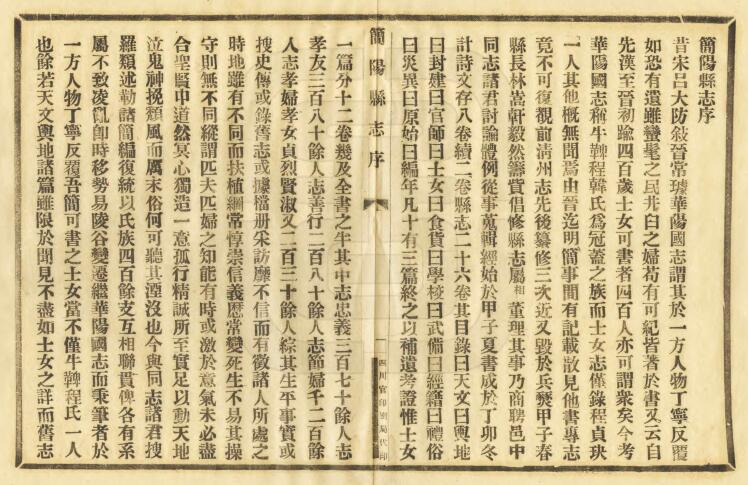 簡陽縣志序
昔宋呂大防敍晉常璩華陽國志謂其於一方人物丁寧反覆
如恐有遺雖蠻髦之民井臼之婦苟有可紀皆著於書又云自
先漢至晉初踰四百歲士女可書者四百人亦可謂衆矣今考
華陽國志稱牛鞞程韓氏爲冠蓋之族而士女志僅錄程貞玦
一人其他槪無聞焉由晉迄明簡事間有記載散見他書專志
竟不可復覩前淸州志先後纂修三次近又毀於兵燹甲子春
縣長林嵩軒毅然籌貲倡修縣志屬相董理其事乃商聘邑中
同志諸君討論體例從事蒐輯經始於甲子夏書成於丁卯冬
計詩文存八卷續二卷縣志二十六卷其目錄曰天文曰輿地
曰封建曰官師曰士女曰食貨曰學校曰武備曰經籍曰禮俗
曰災異曰原始曰編年凡十有三篇終之以補遺考證惟士女
簡陽縣志 序
一
四川官印刷局代印
一篇分十二卷幾及全書之半其中志忠義三百七十餘人志
孝友三百八十餘人志善行二百八十餘人志節婦千二百餘
人志孝婦孝女貞烈賢淑又二百三十餘人綜其生平事實或
搜史傳或錄舊志或據檔册采訪靡不信而有徵諸人所處之
時地雖有不同而扶植綱常惇崇信義歷常變死生不易其操
守則無不同縱謂匹夫匹婦之知能有時或激於意氣未必盡
合聖賢中道然冥心獨造一意孤行精誠所至實足以動天地
泣鬼神挽頹風而厲末俗何可聽其湮沒也今與同志諸君搜
羅類述勒諸簡編復統以氏族四百餘支互相聯貫俾各有系
屬不致凌亂卽時移勢易陵谷變遷繼華陽國志而秉筆者於
一方人物丁寧反覆吾簡可書之士女當不僅牛鞞程氏一人
也餘若天文輿地諸篇雖限於聞見不盡如士女之詳而舊志